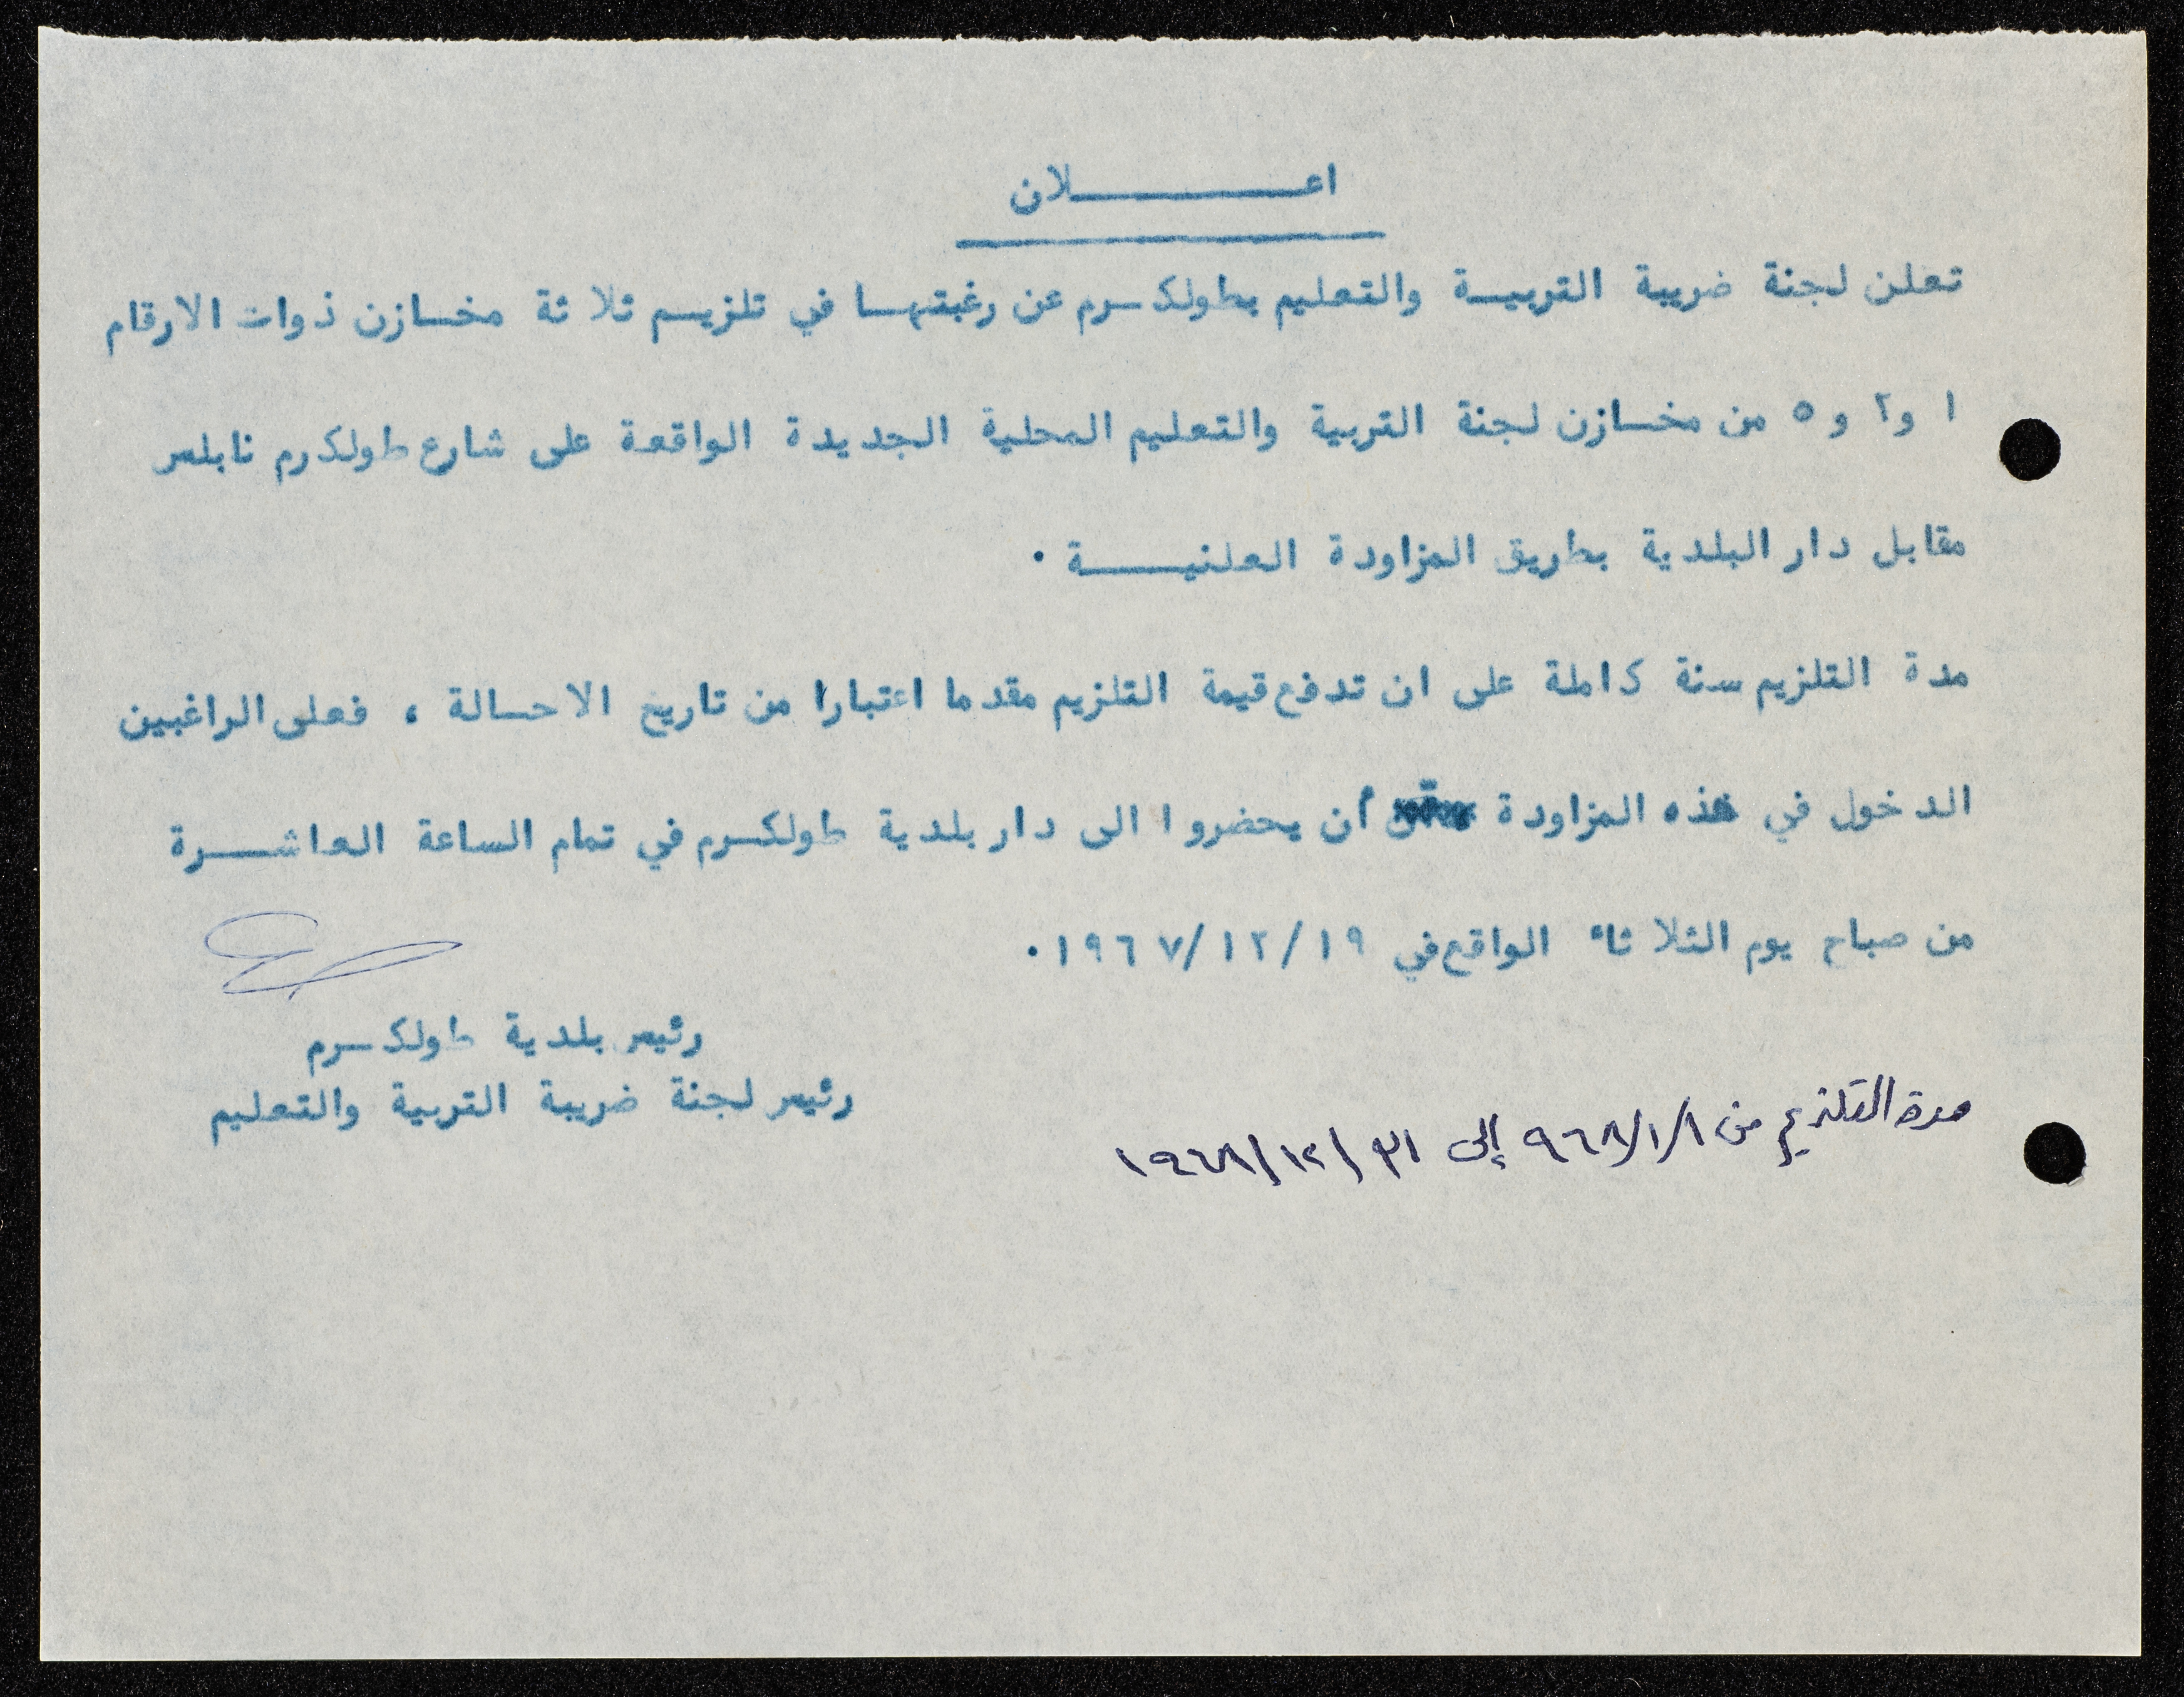 اعـــــــلان
تعلن لجنة ضريبة التربيـة والتعليم بطولكـرم عن رغبتهـا في تلزيـم ثلاثة مخـازن ذوات الارقام
١ و٢ و ٥ من مخـازن لجنة التربية والتعليم المحلية الجديدة الواقعة على شارع طولكرم نابلس
مقابل دار البلدية بطريق المزاودة العلنيـــة ٠
مدة التلزيم سنة كاملة على ان تدفع قيمة التلزيم مقدما اعتبارا من تاريخ الاحـالة ، فعلى الراغبين
الدخول في هذه المزاودة أن يحضروا الى دار بلدية طولكـرم في تمام الساعة العاشـــرة
من صباح يوم الثلاثاء الواقع في ١٩/١٢/١٩٦٧ ٠
رئيس بلدية طولكـرم
رئيس لجنة ضريبة التربية والتعليم
مدة التلزيم من ١/١/٩٦٨ إلى ٣١/١٢/١٩٦٨